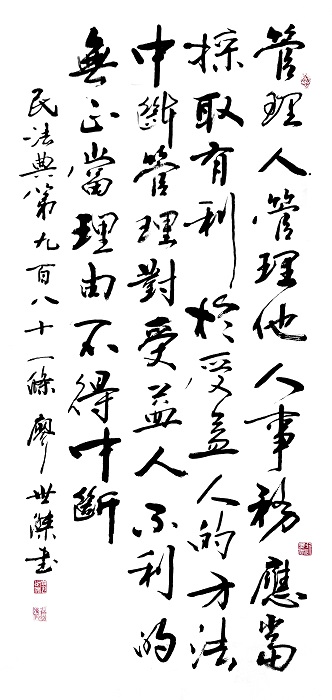 管理人管理他人事務應當
採取有利於受益人的方法
中斷管理對受益人不利的
無正當理由不得中斷
民法典第九百八十一條 廖世傑書